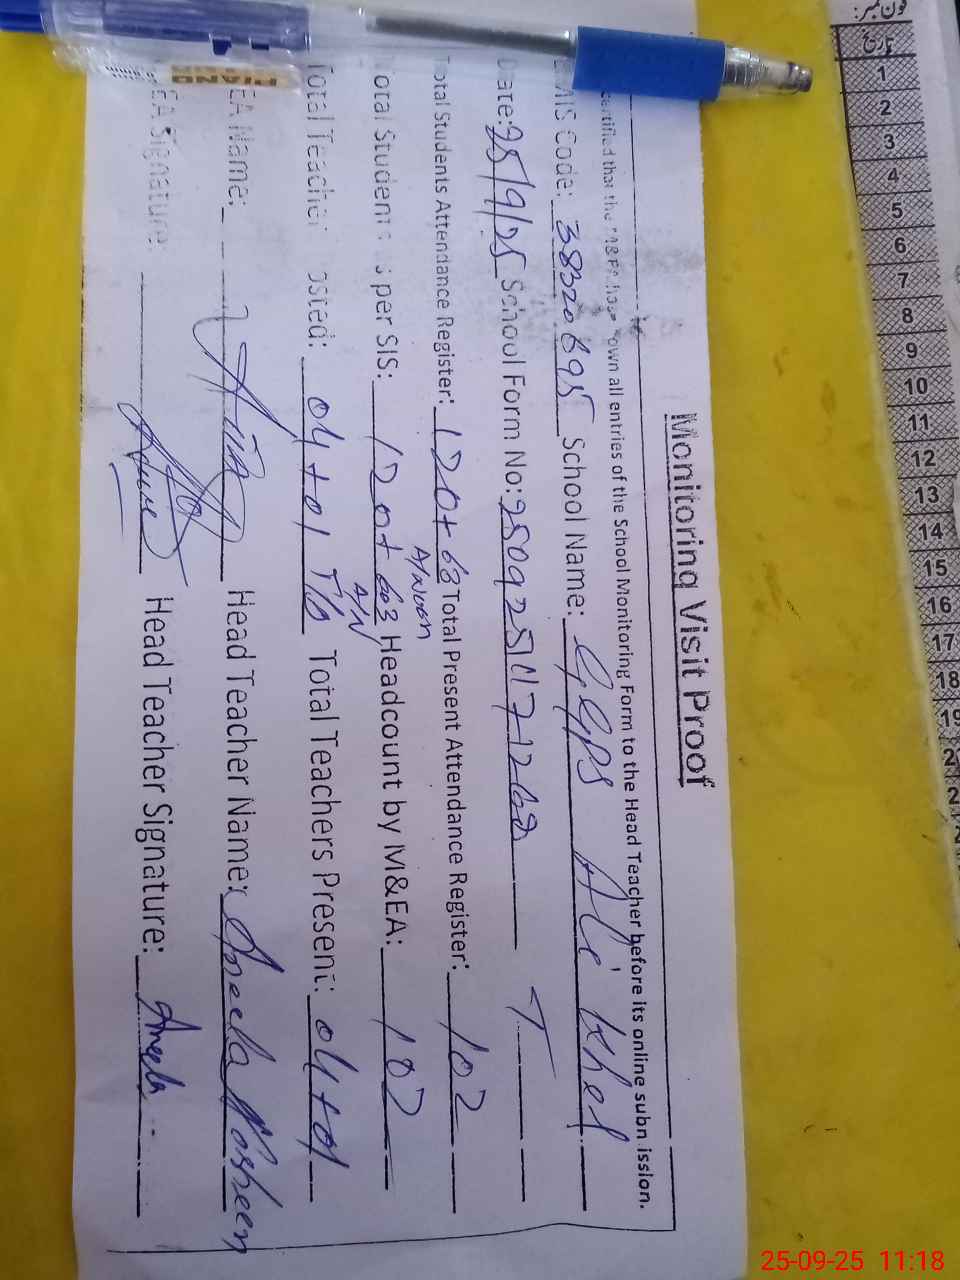 Monitoring Visit Proof
certified that the shown all entries of the School Monitoring Form to the Head Teacher before its online submission.
EMIS Code: 38320695 School Name: GGPS Ali Khel
Date: 25/9/25 School Form No: 250925117-1262
Total Students Attendance Register: 120+63 Total Present Attendance Register: 102
A/Noon
Total Students as per SIS: 120+603 Headcount by M&EA: 102
A/N
Total Teachers Posted: 04+01 Total Teachers Present: 04+01
EA Name: Head Teacher Name: Aneela Nosheen
EA Signature: Head Teacher Signature: Aneela
PIANO
فون نمبر:
تاریخ
1
2
3
4
5
6
7
8
9
10
11
12
13
14
15
16
17
18
19
25-09-25 11:18